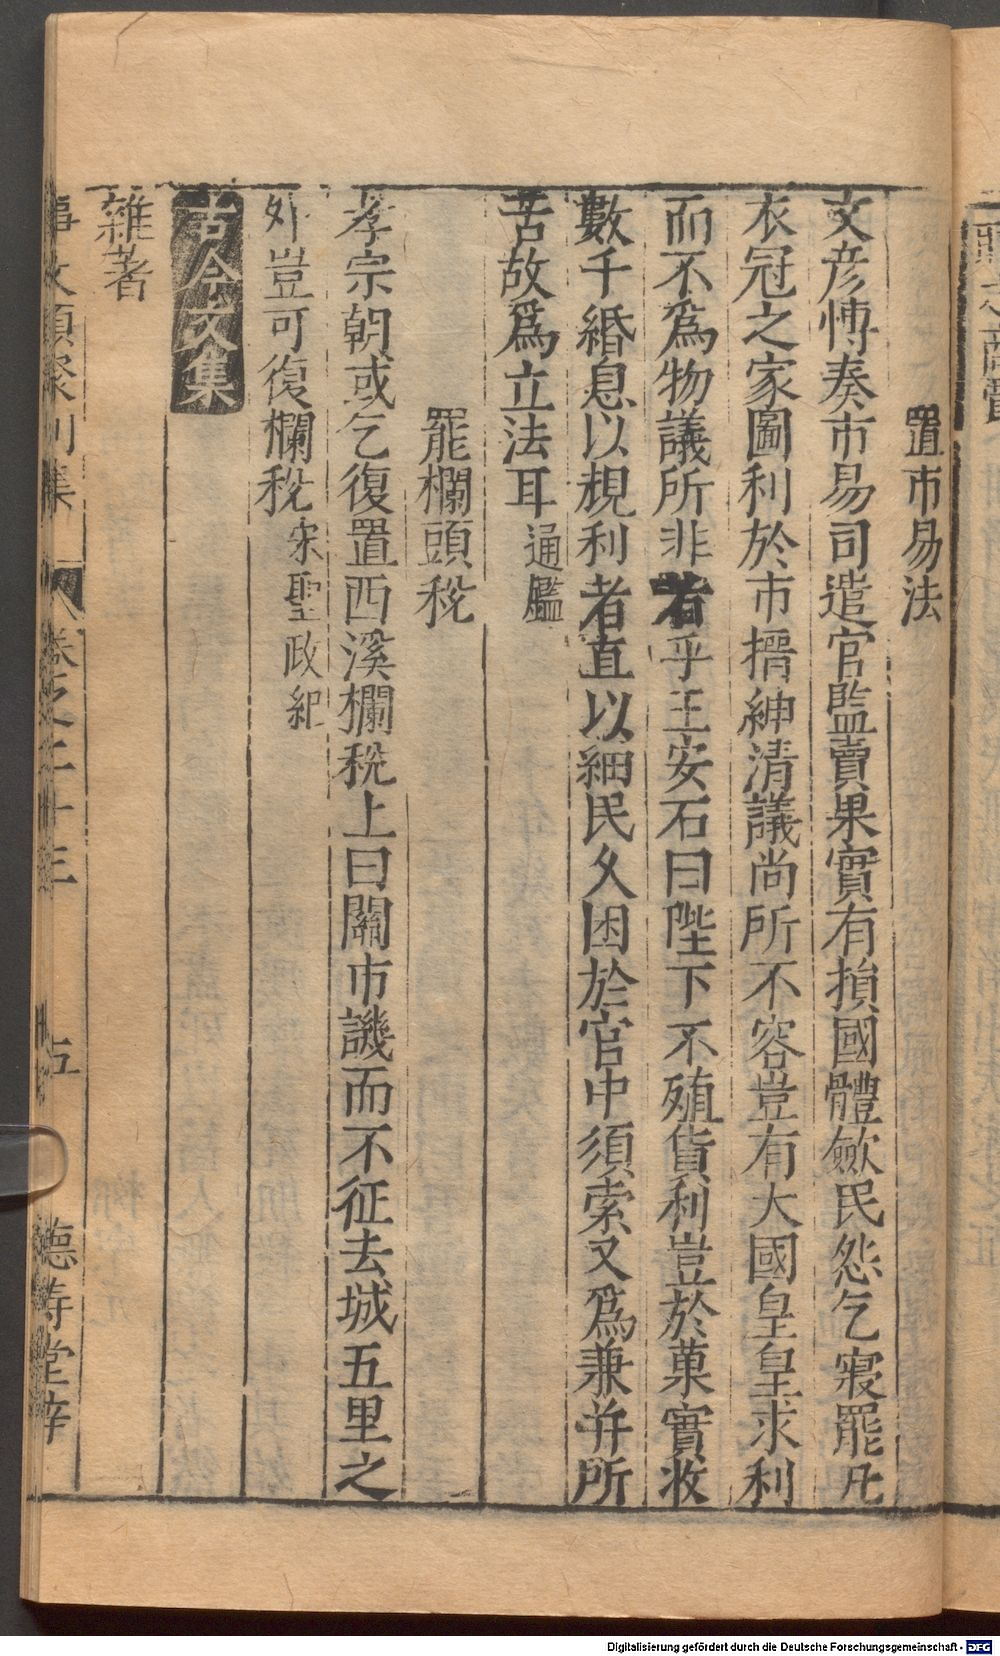 置市易法
文彦愽奏市易司遣官監賣果實有損國體斂民怨乞寢罷凡
衣冠之家圖利於市搢紳清議尚所不容豈有大國皇皇求利
而不爲物議所非者乎王安石曰陛下不殖貨利豈於菓實收
數千緡息以規利者直以細民久困於官中須索又爲兼并所
苦故爲立法耳通鑑
罷欄頭稅
孝宗朝或乞復置西溪欄稅上曰關市譏而不征去城五里之
外豈可復欄稅宋聖政紀
古今文集
雜著
事文類聚別集 卷之二十三 五 德壽堂梓
Digitalisierung gefördert durch die Deutsche Forschungsgemeinschaft - DFG